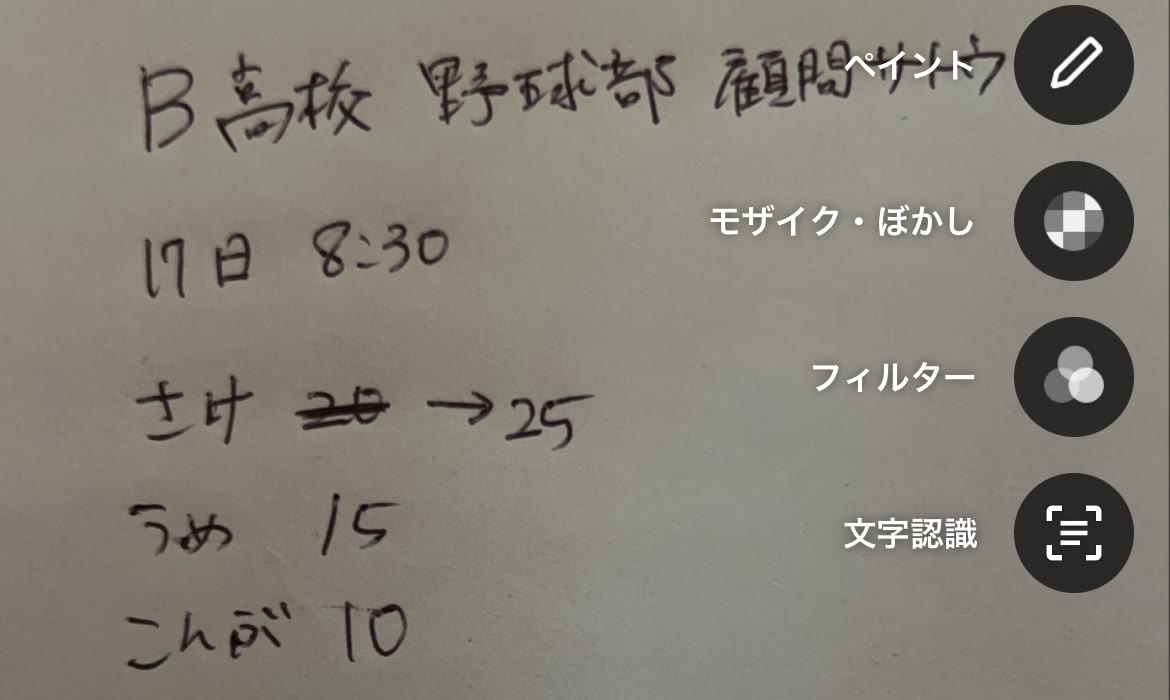 B高校 野球部 顧問サトウ
ペイント
17日 8:30
モザイク・ぼかし
さけ 20 → 25
フィルター
うめ 15
文字認識
こんぶ 10